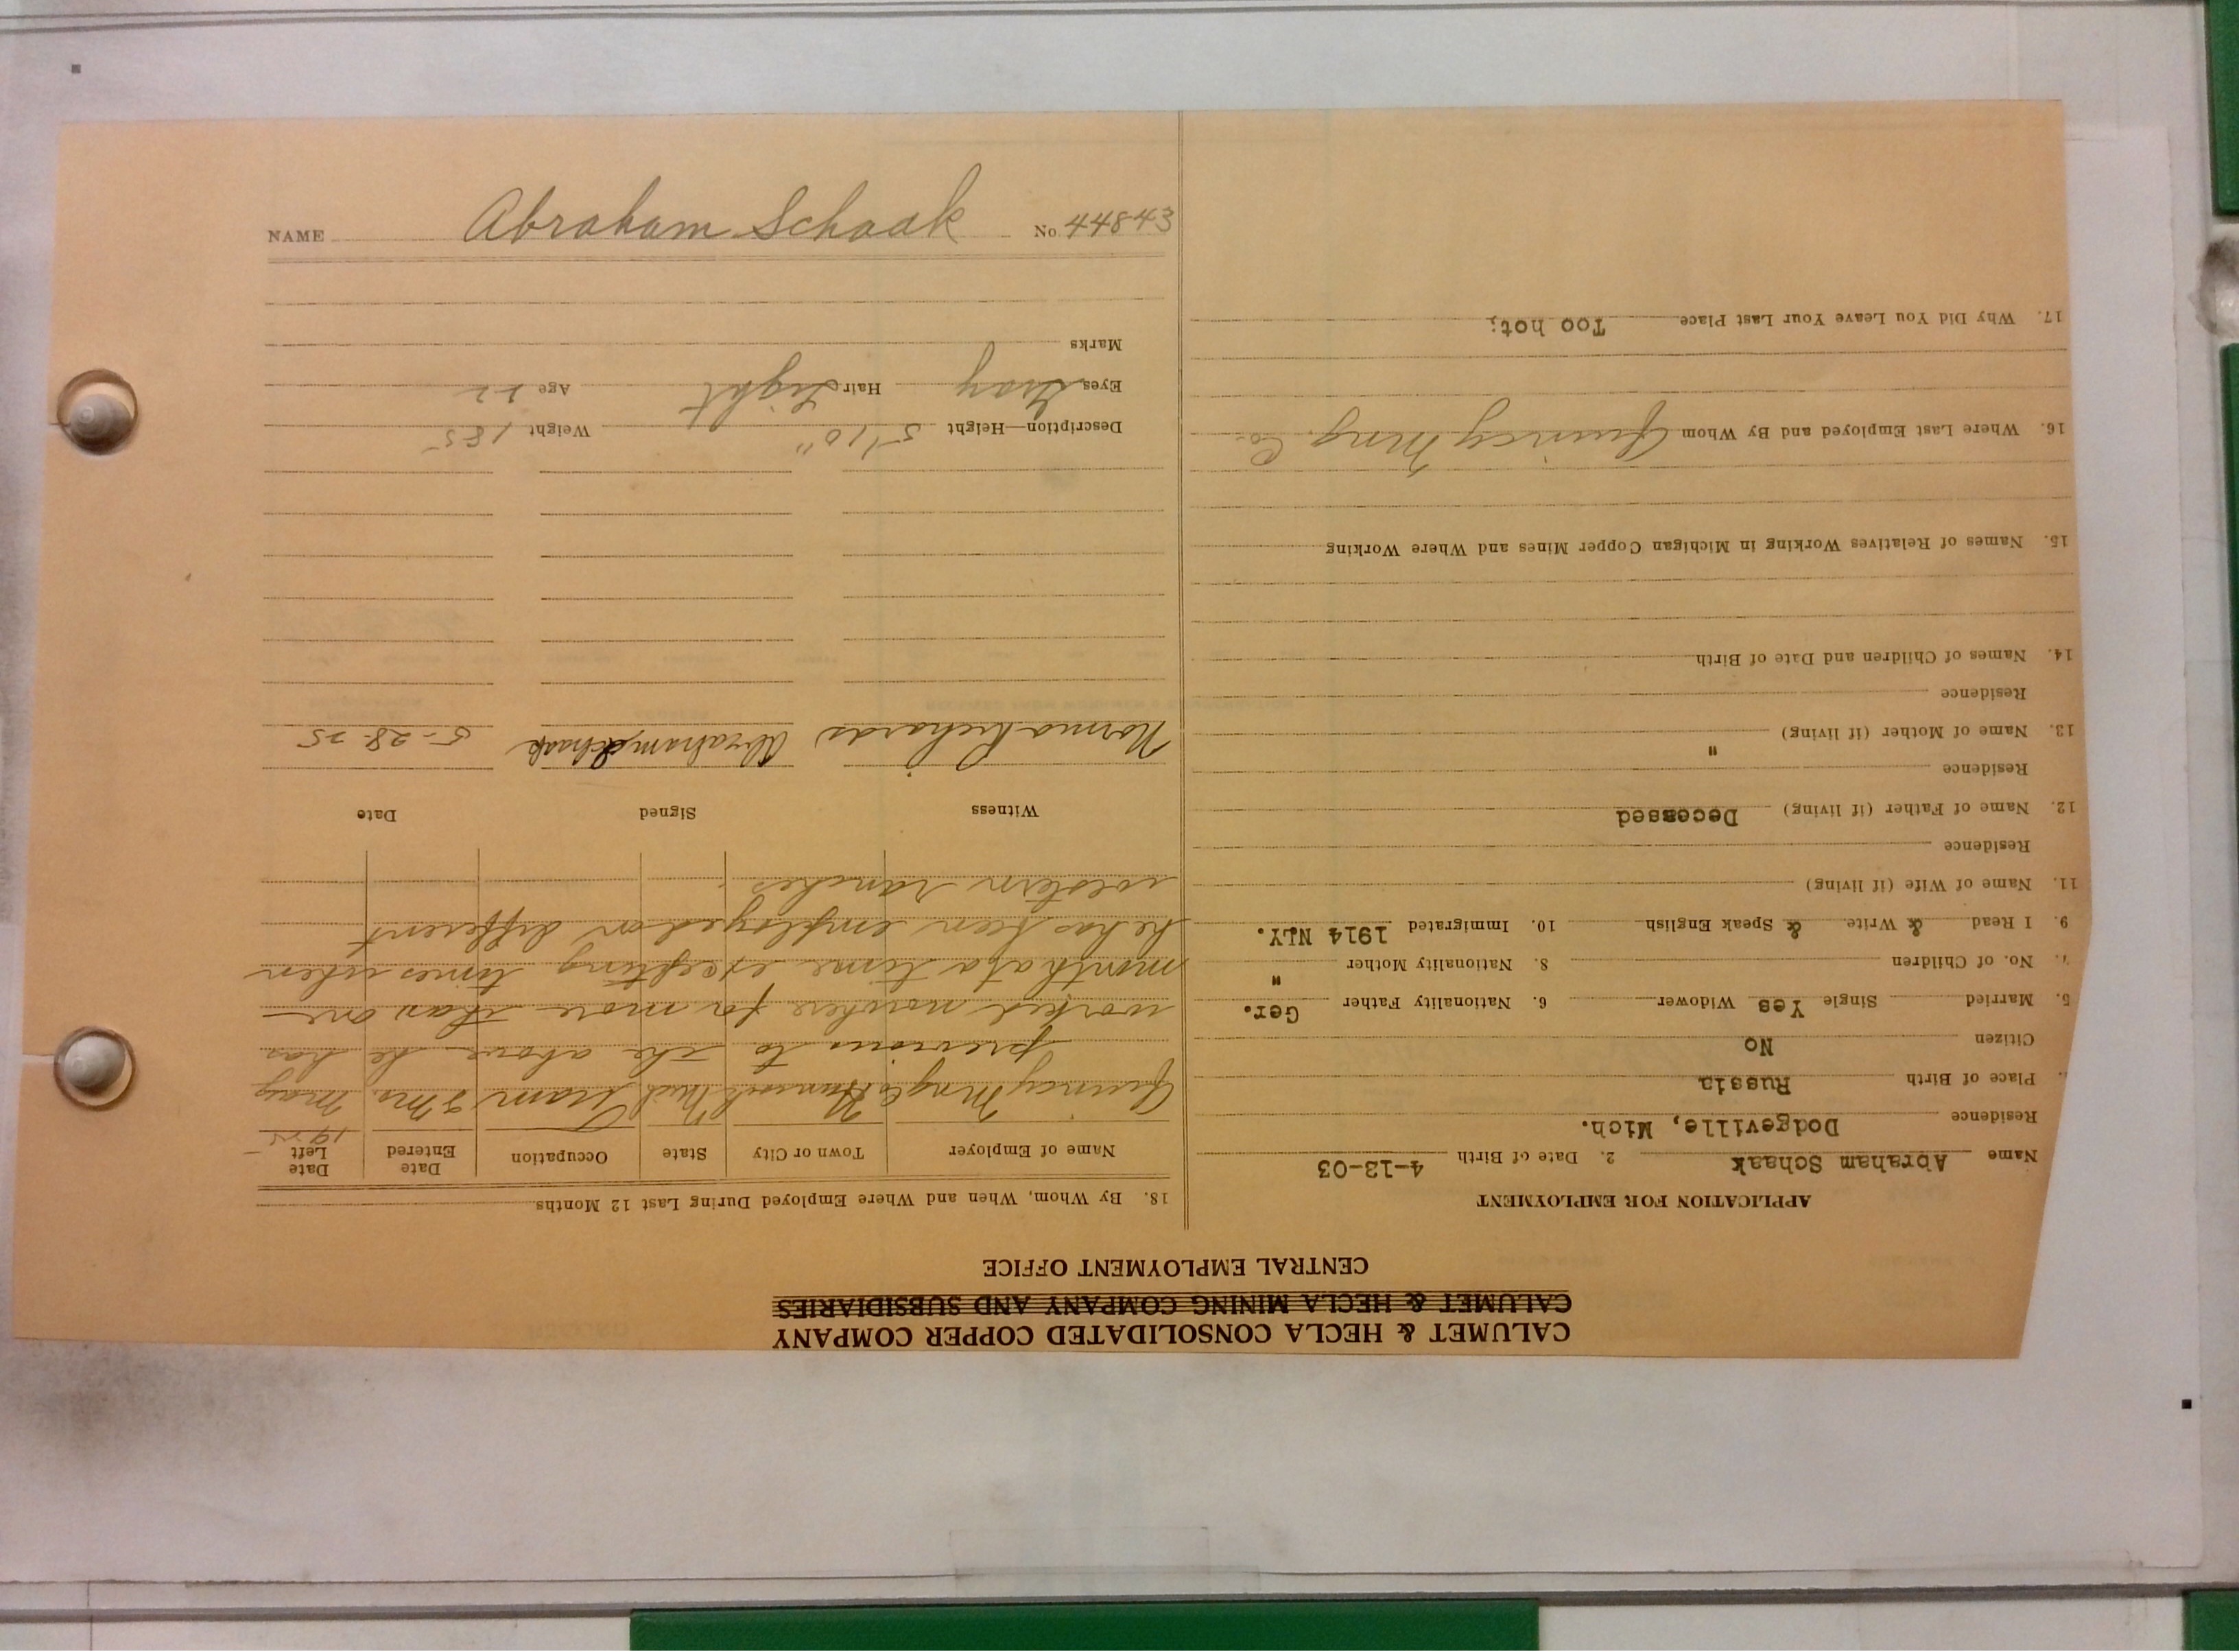 NAME Abraham Schaak No 44843
CALUMET & HECLA CONSOLIDATED COPPER COMPANY
CALUMET & HECLA MINING COMPANY AND SUBSIDIARIES
CENTRAL EMPLOYMENT OFFICE
APPLICATION FOR EMPLOYMENT
Name Abraham Schaak 2. Date of Birth 4-13-03
Residence Dodgeville, Mich.
Place of Birth Russia
Citizen No
5. Married Single Yes Widower 6. Nationality Father Ger.
7. No. of Children 8. Nationality Mother "
9. I Read & Write & Speak English 10. Immigrated 1914 N.Y.
11. Name of Wife (if living)
Residence
12. Name of Father (if living) Deceased
Residence
13. Name of Mother (if living) "
Residence
14. Names of Children and Date of Birth
15. Names of Relatives Working in Michigan Copper Mines and Where Working
16. Where Last Employed and By Whom Quincy Mng. Co.
17. Why Did You Leave Your Last Place Too hot;
18. By Whom, When and Where Employed During Last 12 Months
Name of Employer Town or City State Occupation Date Entered Date Left
1925
Quincy Mng Co Hancock Mich Tram 2 Mo. May
previous to the above he has
worked nowhere for more than one
month at a time excepting times when
he has been employed on different
western ranches.
Witness Signed Date
Norma Richards Abraham Schaak 5-28-25
Description—Height 5'10" Weight 185
Eyes Gray Hair Light Age 22
Marks